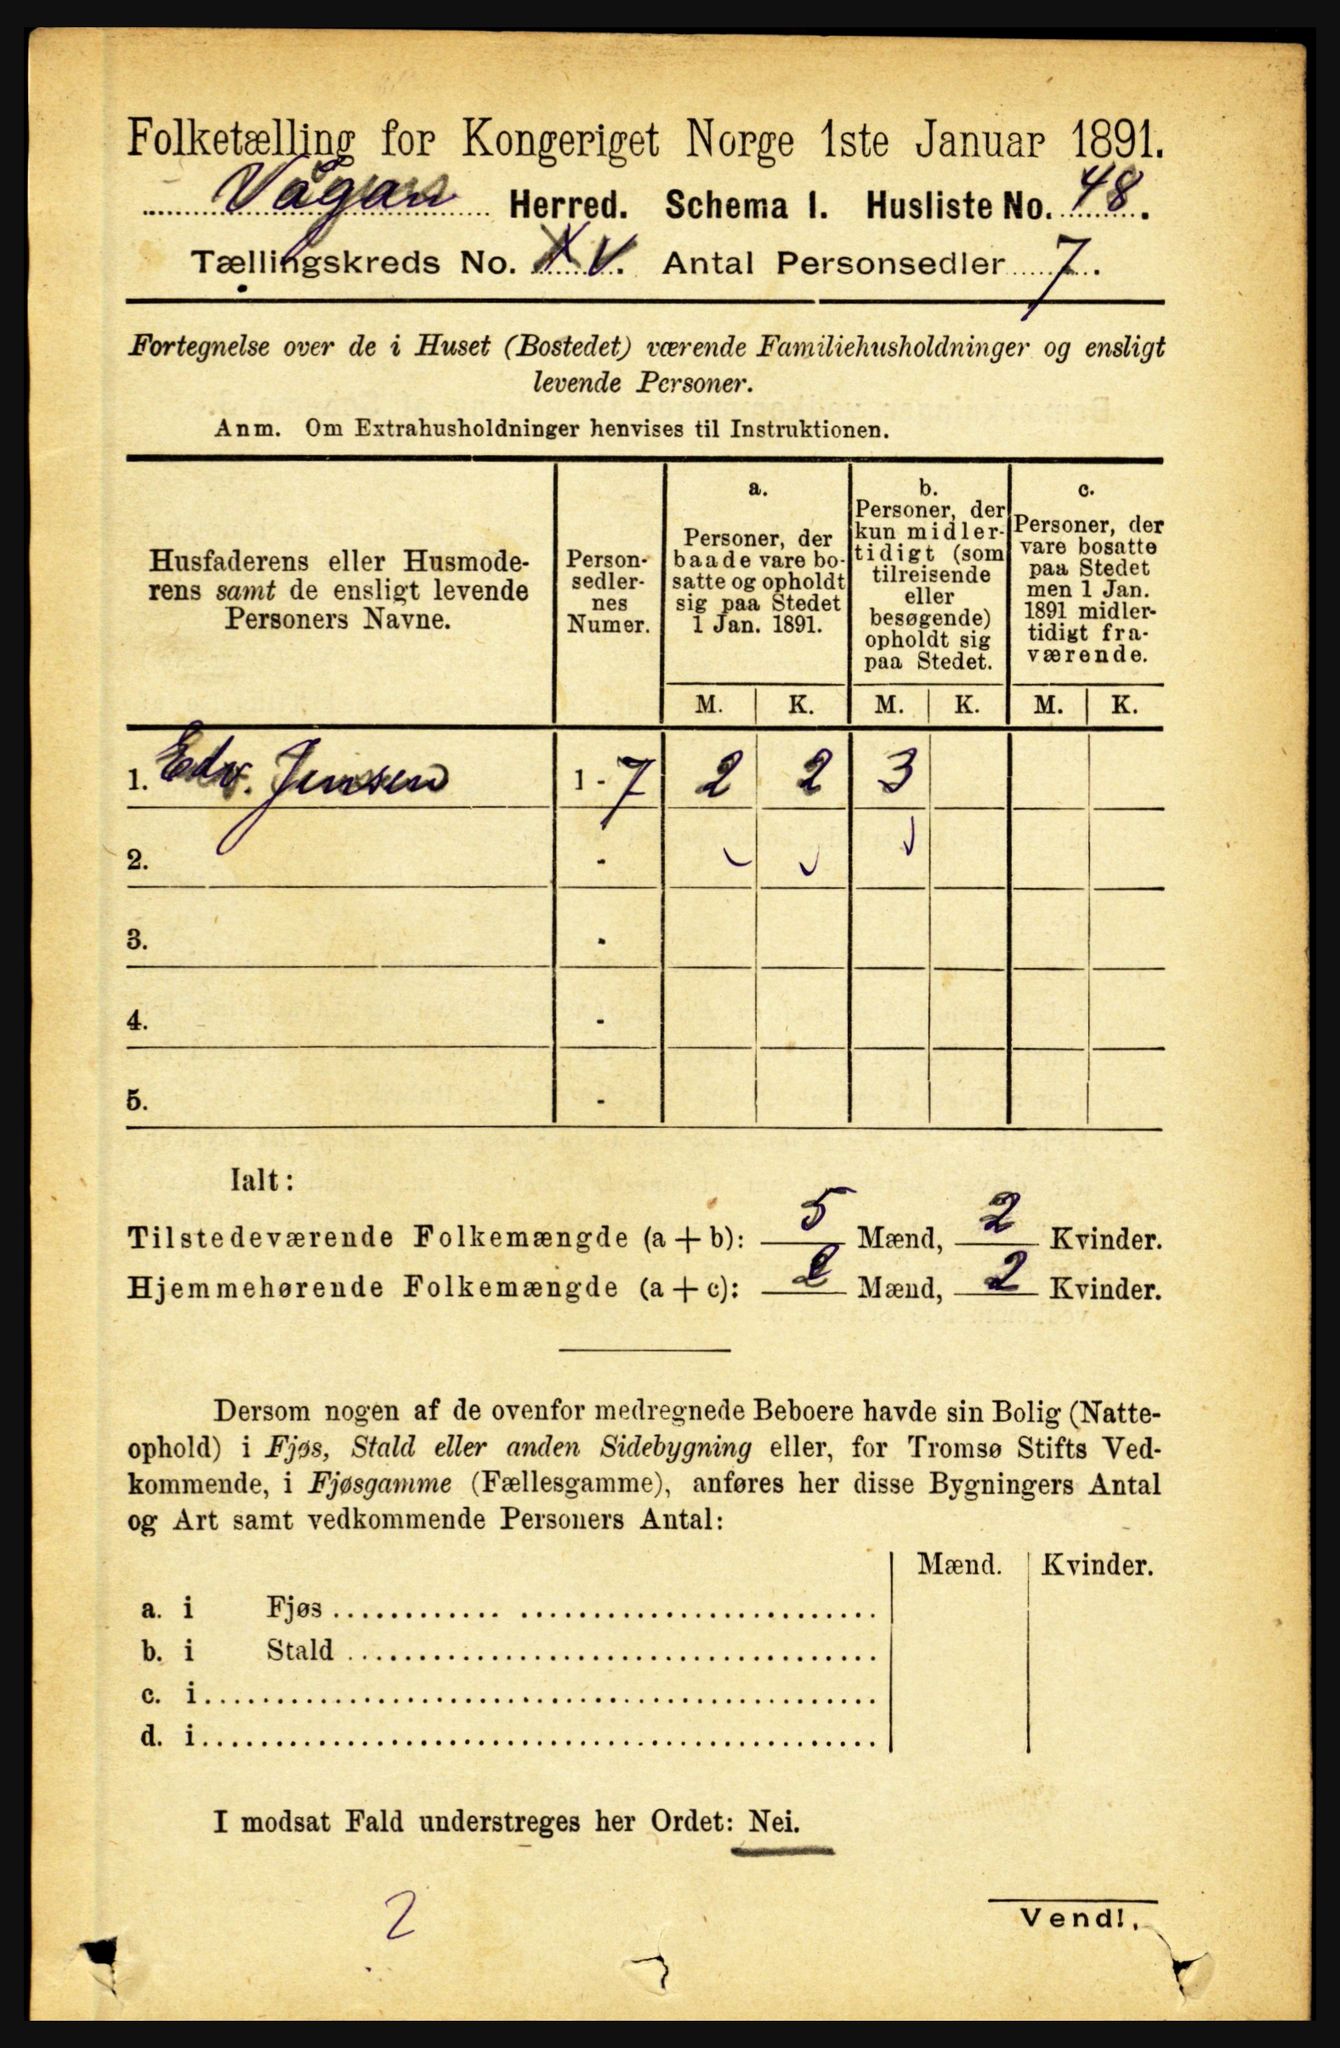 Folketælling for Kongeriget Norge 1ste Januar 1891.
Vågan Herred. Schema I. Husliste No. 48.
Tællingskreds No. XV. Antal Personsedler 7.
Fortegnelse over de i Huset (Bostedet) værende Familiehusholdninger og ensligt
levende Personer.
Anm. Om Extrahusholdninger henvises til Instruktionen.
Husfaderens eller Husmode-
rens samt de ensligt levende
Personers Navne.
Person-
sedler-
nes
Numer.
a.
Personer, der
baade vare bo-
satte og opholdt
sig paa Stedet
1 Jan. 1891.
b.
Personer, der
kun midler-
tidigt (som
tilreisende
eller
besøgende)
opholdt sig
paa Stedet.
c.
Personer, der
vare bosatte
paa Stedet
men 1 Jan.
1891 midler-
tidigt fra-
værende.
M. K. M. K. M. K.
1. Edv. Jensen 1 - 7 2 2 3
2. -
3. -
4. -
5. -
Ialt:
Tilstedeværende Folkemængde (a + b): 5 Mænd, 2 Kvinder.
Hjemmehørende Folkemængde (a + c): 2 Mænd, 2 Kvinder.
Dersom nogen af de ovenfor medregnede Beboere havde sin Bolig (Natte-
ophold) i Fjøs, Stald eller anden Sidebygning eller, for Tromsø Stifts Ved-
kommende, i Fjøsgamme (Fællesgamme), anføres her disse Bygningers Antal
og Art samt vedkommende Personers Antal:
Mænd. Kvinder.
a. i Fjøs
b. i Stald
c. i
d. i
I modsat Fald understreges her Ordet: Nei.
2
Vend!.